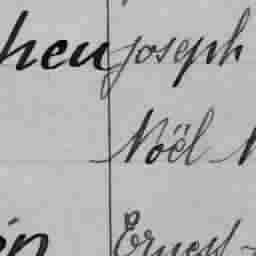 heu Joseph
Noël
Ernest